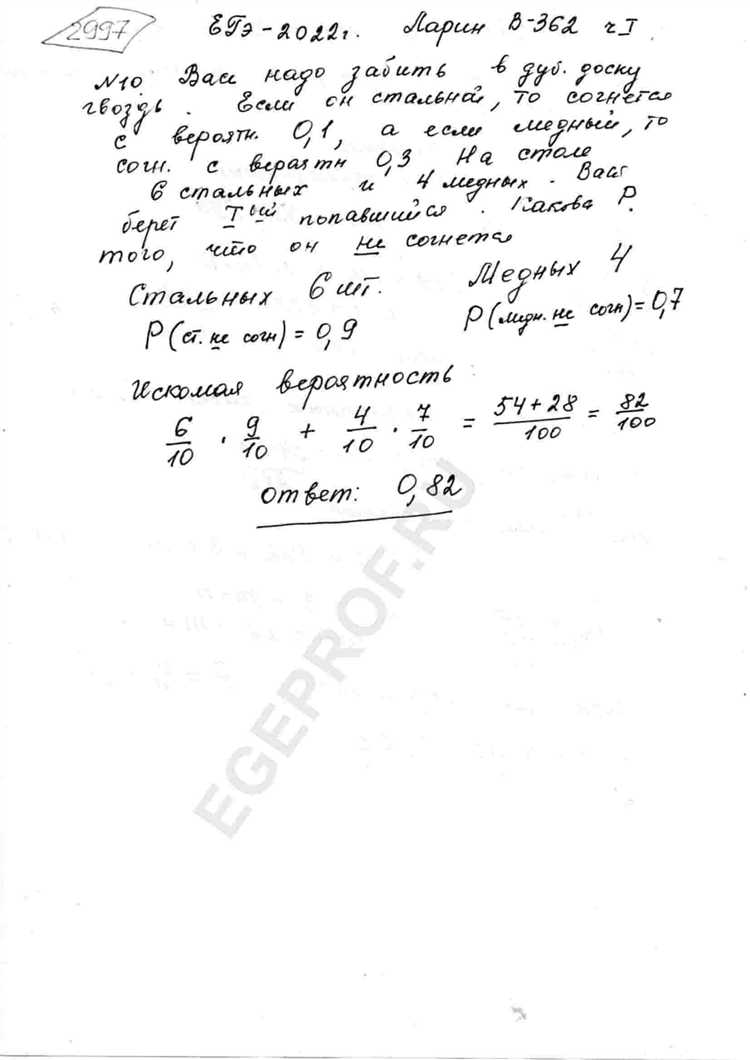 2997
ЕГЭ-2022г. Ларин В-362 ч I
N10 Васе надо забить в дуб. доску
гвоздь. Если он стальной, то согнется
с вероятн. 0,1, а если медный, то
согн. с вероятн 0,3 На столе
6 стальных и 4 медных. Вася
берет 1ый попавшийся. Какова P.
того, что он не согнется
Стальных 6 шт. Медных 4
P(ст. не согн) = 0,9 P(медн. не согн) = 0,7
Искомая вероятность
6/10 · 9/10 + 4/10 · 7/10 = 54+28/100 = 82/100
ответ: 0,82
EGEPROF.RU